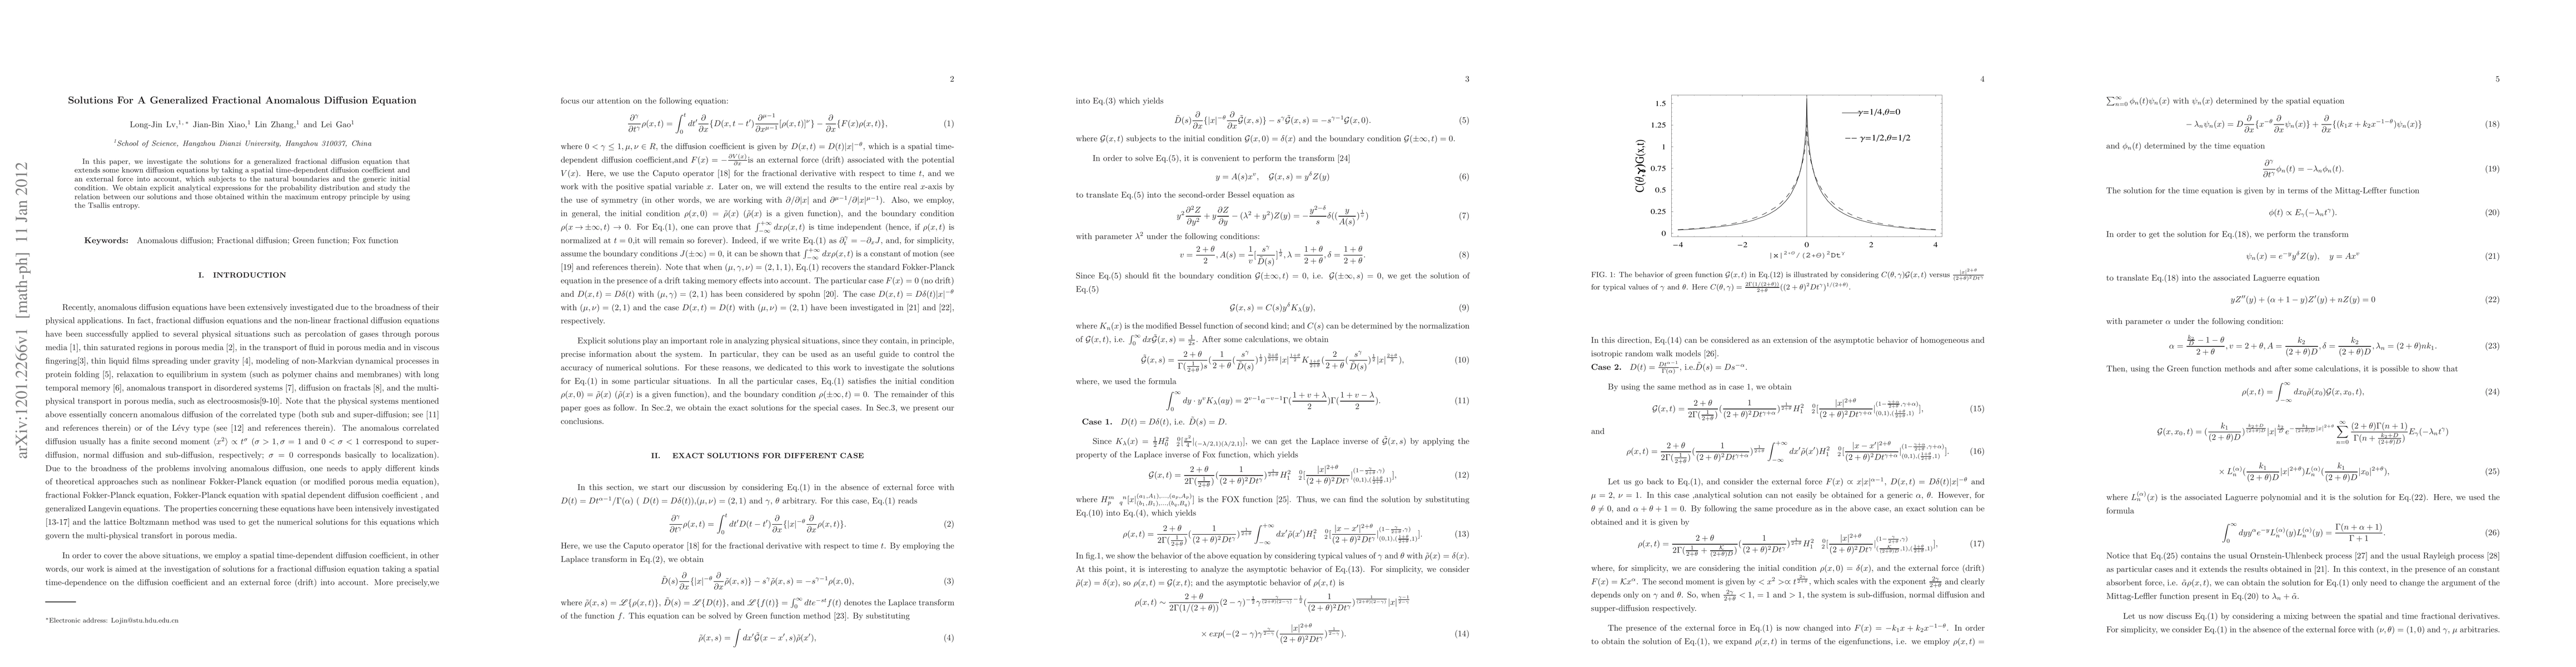 arXiv:1201.2266v1 [math-ph] 11 Jan 2012
Solutions For A Generalized Fractional Anomalous Diffusion Equation
Long-Jin Lv,1,∗ Jian-Bin Xiao,1 Lin Zhang,1 and Lei Gao1
1School of Science, Hangzhou Dianzi University, Hangzhou 310037, China
In this paper, we investigate the solutions for a generalized fractional diffusion equation that
extends some known diffusion equations by taking a spatial time-dependent diffusion coefficient and
an external force into account, which subjects to the natural boundaries and the generic initial
condition. We obtain explicit analytical expressions for the probability distribution and study the
relation between our solutions and those obtained within the maximum entropy principle by using
the Tsallis entropy.
Keywords: Anomalous diffusion; Fractional diffusion; Green function; Fox function
I. INTRODUCTION
Recently, anomalous diffusion equations have been extensively investigated due to the broadness of their
physical applications. In fact, fractional diffusion equations and the non-linear fractional diffusion equations
have been successfully applied to several physical situations such as percolation of gases through porous
media [1], thin saturated regions in porous media [2], in the transport of fluid in porous media and in viscous
fingering[3], thin liquid films spreading under gravity [4], modeling of non-Markvian dynamical processes in
protein folding [5], relaxation to equilibrium in system (such as polymer chains and membranes) with long
temporal memory [6], anomalous transport in disordered systems [7], diffusion on fractals [8], and the multi-
physical transport in porous media, such as electroosmosis[9-10]. Note that the physical systems mentioned
above essentially concern anomalous diffusion of the correlated type (both sub and super-diffusion; see [11]
and references therein) or of the Lévy type (see [12] and references therein). The anomalous correlated
diffusion usually has a finite second moment ⟨x²⟩ ∝ t^σ (σ > 1, σ = 1 and 0 < σ < 1 correspond to super-
diffusion, normal diffusion and sub-diffusion, respectively; σ = 0 corresponds basically to localization).
Due to the broadness of the problems involving anomalous diffusion, one needs to apply different kinds
of theoretical approaches such as nonlinear Fokker-Planck equation (or modified porous media equation),
fractional Fokker-Planck equation, Fokker-Planck equation with spatial dependent diffusion coefficient , and
generalized Langevin equations. The properties concerning these equations have been intensively investigated
[13-17] and the lattice Boltzmann method was used to get the numerical solutions for this equations which
govern the multi-physical transfort in porous media.
In order to cover the above situations, we employ a spatial time-dependent diffusion coefficient, in other
words, our work is aimed at the investigation of solutions for a fractional diffusion equation taking a spatial
time-dependence on the diffusion coefficient and an external force (drift) into account. More precisely,we
∗Electronic address: Lojin@stu.hdu.edu.cn
2
focus our attention on the following equation:
∂^γ/∂t^γ ρ(x, t) = ∫_0^t dt′ ∂/∂x {D(x, t − t′) ∂^{μ−1}/∂x^{μ−1} [ρ(x, t)]^ν} − ∂/∂x {F(x)ρ(x, t)}, (1)
where 0 < γ ≤ 1, μ, ν ∈ R, the diffusion coefficient is given by D(x, t) = D(t)|x|^{−θ}, which is a spatial time-
dependent diffusion coefficient,and F(x) = −∂V(x)/∂x is an external force (drift) associated with the potential
V(x). Here, we use the Caputo operator [18] for the fractional derivative with respect to time t, and we
work with the positive spatial variable x. Later on, we will extend the results to the entire real x-axis by
the use of symmetry (in other words, we are working with ∂/∂|x| and ∂^{μ−1}/∂|x|^{μ−1}). Also, we employ,
in general, the initial condition ρ(x, 0) = ρ̃(x) (ρ̃(x) is a given function), and the boundary condition
ρ(x → ±∞, t) → 0. For Eq.(1), one can prove that ∫_{−∞}^{+∞} dxρ(x, t) is time independent (hence, if ρ(x, t) is
normalized at t = 0,it will remain so forever). Indeed, if we write Eq.(1) as ∂_t^γ = −∂_x J, and, for simplicity,
assume the boundary conditions J(±∞) = 0, it can be shown that ∫_{−∞}^{+∞} dxρ(x, t) is a constant of motion (see
[19] and references therein). Note that when (μ, γ, ν) = (2, 1, 1), Eq.(1) recovers the standard Fokker-Planck
equation in the presence of a drift taking memory effects into account. The particular case F(x) = 0 (no drift)
and D(x, t) = Dδ(t) with (μ, γ) = (2, 1) has been considered by spohn [20]. The case D(x, t) = Dδ(t)|x|^{−θ}
with (μ, ν) = (2, 1) and the case D(x, t) = D(t) with (μ, ν) = (2, 1) have been investigated in [21] and [22],
respectively.
Explicit solutions play an important role in analyzing physical situations, since they contain, in principle,
precise information about the system. In particular, they can be used as an useful guide to control the
accuracy of numerical solutions. For these reasons, we dedicated to this work to investigate the solutions
for Eq.(1) in some particular situations. In all the particular cases, Eq.(1) satisfies the initial condition
ρ(x, 0) = ρ̃(x) (ρ̃(x) is a given function), and the boundary condition ρ(±∞, t) = 0. The remainder of this
paper goes as follow. In Sec.2, we obtain the exact solutions for the special cases. In Sec.3, we present our
conclusions.
II. EXACT SOLUTIONS FOR DIFFERENT CASE
In this section, we start our discussion by considering Eq.(1) in the absence of external force with
D(t) = Dt^{α−1}/Γ(α) ( D(t) = Dδ(t)),(μ, ν) = (2, 1) and γ, θ arbitrary. For this case, Eq.(1) reads
∂^γ/∂t^γ ρ(x, t) = ∫_0^t dt′D(t − t′) ∂/∂x {|x|^{−θ} ∂/∂x ρ(x, t)}. (2)
Here, we use the Caputo operator [18] for the fractional derivative with respect to time t. By employing the
Laplace transform in Eq.(2), we obtain
D̃(s) ∂/∂x {|x|^{−θ} ∂/∂x ρ̃(x, s)} − s^γ ρ̃(x, s) = −s^{γ−1}ρ(x, 0), (3)
where ρ̃(x, s) = ℒ{ρ(x, t)}, D̃(s) = ℒ{D(t)}, and ℒ{f(t)} = ∫_0^∞ dte^{−st} f(t) denotes the Laplace transform
of the function f. This equation can be solved by Green function method [23]. By substituting
ρ̃(x, s) = ∫ dx′𝒢̃(x − x′, s)ρ̃(x′), (4)
3
into Eq.(3) which yields
D̃(s) ∂/∂x {|x|^{−θ} ∂/∂x 𝒢̃(x, s)} − s^γ 𝒢̃(x, s) = −s^{γ−1}𝒢(x, 0). (5)
where 𝒢(x, t) subjects to the initial condition 𝒢(x, 0) = δ(x) and the boundary condition 𝒢(±∞, t) = 0.
In order to solve Eq.(5), it is convenient to perform the transform [24]
y = A(s)x^v, 𝒢(x, s) = y^δ Z(y) (6)
to translate Eq.(5) into the second-order Bessel equation as
y² ∂²Z/∂y² + y ∂Z/∂y − (λ² + y²)Z(y) = −(y^{2−δ}/s) δ((y/A(s))^{1/v}) (7)
with parameter λ² under the following conditions:
v = (2 + θ)/2, A(s) = (1/v)[s^γ/D̃(s)]^{1/2}, λ = (1 + θ)/(2 + θ), δ = (1 + θ)/(2 + θ). (8)
Since Eq.(5) should fit the boundary condition 𝒢(±∞, t) = 0, i.e. 𝒢(±∞, s) = 0, we get the solution of
Eq.(5)
𝒢(x, s) = C(s)y^δ K_λ(y), (9)
where K_n(x) is the modified Bessel function of second kind; and C(s) can be determined by the normalization
of 𝒢(x, t), i.e. ∫_0^∞ dx𝒢̃(x, s) = 1/2s. After some calculations, we obtain
𝒢̃(x, s) = (2 + θ)/(Γ(1/(2+θ))s) (1/(2 + θ) (s^γ/D̃(s))^{1/2})^{(3+θ)/(2+θ)} |x|^{(1+θ)/2} K_{(1+θ)/(2+θ)}(2/(2 + θ) (s^γ/D̃(s))^{1/2} |x|^{(2+θ)/2}), (10)
where, we used the formula
∫_0^∞ dy · y^v K_λ(ay) = 2^{v−1}a^{−v−1}Γ((1 + v + λ)/2)Γ((1 + v − λ)/2). (11)
Case 1. D(t) = Dδ(t), i.e. D̃(s) = D.
Since K_λ(x) = ½H_0^2 _2^0[x²/4|_{(−λ/2,1)(λ/2,1)}], we can get the Laplace inverse of 𝒢̃(x, s) by applying the
property of the Laplace inverse of Fox function, which yields
𝒢(x, t) = (2 + θ)/(2Γ(1/(2+θ))) (1/((2 + θ)²Dt^γ))^{1/(2+θ)} H_1^2 _2^0[|x|^{2+θ}/((2 + θ)²Dt^γ)|^{(1−γ/(2+θ),γ)}_{(0,1),((1+θ)/(2+θ),1)}], (12)
where H_p^m _q^n[x|^{(a_1,A_1),...,(a_p,A_p)}_{(b_1,B_1),...,(b_q,B_q)}] is the FOX function [25]. Thus, we can find the solution by substituting
Eq.(10) into Eq.(4), which yields
ρ(x, t) = (2 + θ)/(2Γ(1/(2+θ))) (1/((2 + θ)²Dt^γ))^{1/(2+θ)} ∫_{−∞}^{+∞} dx′ρ̃(x′)H_1^2 _2^0[|x − x′|^{2+θ}/((2 + θ)²Dt^γ)|^{(1−γ/(2+θ),γ)}_{(0,1),((1+θ)/(2+θ),1)}]. (13)
In fig.1, we show the behavior of the above equation by considering typical values of γ and θ with ρ̃(x) = δ(x).
At this point, it is interesting to analyze the asymptotic behavior of Eq.(13). For simplicity, we consider
ρ̃(x) = δ(x), so ρ(x, t) = 𝒢(x, t); and the asymptotic behavior of ρ(x, t) is
× exp(−(2 − γ)γ^{γ/(2−γ)}(|x|^{2+θ}/((2 + θ)²Dt^γ))^{1/(2−γ)}). (14)
4
C(θ,γ)G(x,t)
1.5
1.25
1
0.75
0.5
0.25
0
γ=1/4,θ=0
γ=1/2,θ=1/2
−4 −2 0 2 4
|x|^{2+θ}/(2+θ)²Dt^γ
FIG. 1: The behavior of green function 𝒢(x, t) in Eq.(12) is illustrated by considering C(θ, γ)𝒢(x, t) versus |x|^{2+θ}/((2+θ)²Dt^γ)
for typical values of γ and θ. Here C(θ, γ) = (2Γ(1/(2+θ))/(2+θ))((2 + θ)²Dt^γ)^{1/(2+θ)}.
In this direction, Eq.(14) can be considered as an extension of the asymptotic behavior of homogeneous and
isotropic random walk models [26].
Case 2. D(t) = Dt^{α−1}/Γ(α), i.e.D̃(s) = Ds^{−α}.
By using the same method as in case 1, we obtain
𝒢(x, t) = (2 + θ)/(2Γ(1/(2+θ))) (1/((2 + θ)²Dt^{γ+α}))^{1/(2+θ)} H_1^2 _2^0[|x|^{2+θ}/((2 + θ)²Dt^{γ+α})|^{(1−(γ+α)/(2+θ),γ+α)}_{(0,1),((1+θ)/(2+θ),1)}], (15)
and
ρ(x, t) = (2 + θ)/(2Γ(1/(2+θ))) (1/((2 + θ)²Dt^{γ+α}))^{1/(2+θ)} ∫_{−∞}^{+∞} dx′ρ̃(x′)H_1^2 _2^0[|x − x′|^{2+θ}/((2 + θ)²Dt^{γ+α})|^{(1−(γ+α)/(2+θ),γ+α)}_{(0,1),((1+θ)/(2+θ),1)}]. (16)
Let us go back to Eq.(1), and consider the external force F(x) ∝ x|x|^{α−1}, D(x, t) = Dδ(t)|x|^{−θ} and
μ = 2, ν = 1. In this case ,analytical solution can not easily be obtained for a generic α, θ. However, for
θ ≠ 0, and α + θ + 1 = 0. By following the same procedure as in the above case, an exact solution can be
obtained and it is given by
where, for simplicity, we are considering the initial condition ρ(x, 0) = δ(x), and the external force (drift)
F(x) = 𝒦x^α. The second moment is given by < x² >∝ t^{2γ/(2+θ)}, which scales with the exponent 2γ/(2+θ) and clearly
depends only on γ and θ. So, when 2γ/(2+θ) < 1, = 1 and > 1, the system is sub-diffusion, normal diffusion and
supper-diffusion respectively.
The presence of the external force in Eq.(1) is now changed into F(x) = −k_1x + k_2x^{−1−θ}. In order
to obtain the solution of Eq.(1), we expand ρ(x, t) in terms of the eigenfunctions, i.e. we employ ρ(x, t) =
5
∑_{n=0}^∞ φ_n(t)ψ_n(x) with ψ_n(x) determined by the spatial equation
− λ_nψ_n(x) = D ∂/∂x {x^{−θ} ∂/∂x ψ_n(x)} + ∂/∂x {(k_1x + k_2x^{−1−θ})ψ_n(x)} (18)
and φ_n(t) determined by the time equation
∂^γ/∂t^γ φ_n(t) = −λ_nφ_n(t). (19)
The solution for the time equation is given by in terms of the Mittag-Leffter function
φ(t) ∝ E_γ(−λ_nt^γ). (20)
In order to get the solution for Eq.(18), we perform the transform
ψ_n(x) = e^{−y}y^δ Z(y), y = Ax^v (21)
to translate Eq.(18) into the associated Laguerre equation
yZ″(y) + (α + 1 − y)Z′(y) + nZ(y) = 0 (22)
with parameter α under the following condition:
α = (k_2/D − 1 − θ)/(2 + θ), v = 2 + θ, A = k_2/((2 + θ)D), δ = k_2/((2 + θ)D), λ_n = (2 + θ)nk_1. (23)
Then, using the Green function methods and after some calculations, it is possible to show that
ρ(x, t) = ∫_{−∞}^∞ dx_0ρ̃(x_0)𝒢(x, x_0, t), (24)
× L_n^{(α)}(k_1/((2 + θ)D)|x|^{2+θ})L_n^{(α)}(k_1/((2 + θ)D)|x_0|^{2+θ}), (25)
where L_n^{(α)}(x) is the associated Laguerre polynomial and it is the solution for Eq.(22). Here, we used the
formula
∫_0^∞ dyy^αe^{−y}L_n^{(α)}(y)L_n^{(α)}(y) = Γ(n + α + 1)/(Γ + 1). (26)
Notice that Eq.(25) contains the usual Ornstein-Uhlenbeck process [27] and the usual Rayleigh process [28]
as particular cases and it extends the results obtained in [21]. In this context, in the presence of an constant
absorbent force, i.e. ᾱρ(x, t), we can obtain the solution for Eq.(1) only need to change the argument of the
Mittag-Leffler function present in Eq.(20) to λ_n + ᾱ.
Let us now discuss Eq.(1) by considering a mixing between the spatial and time fractional derivatives.
For simplicity, we consider Eq.(1) in the absence of the external force with (ν, θ) = (1, 0) and γ, μ arbitraries.